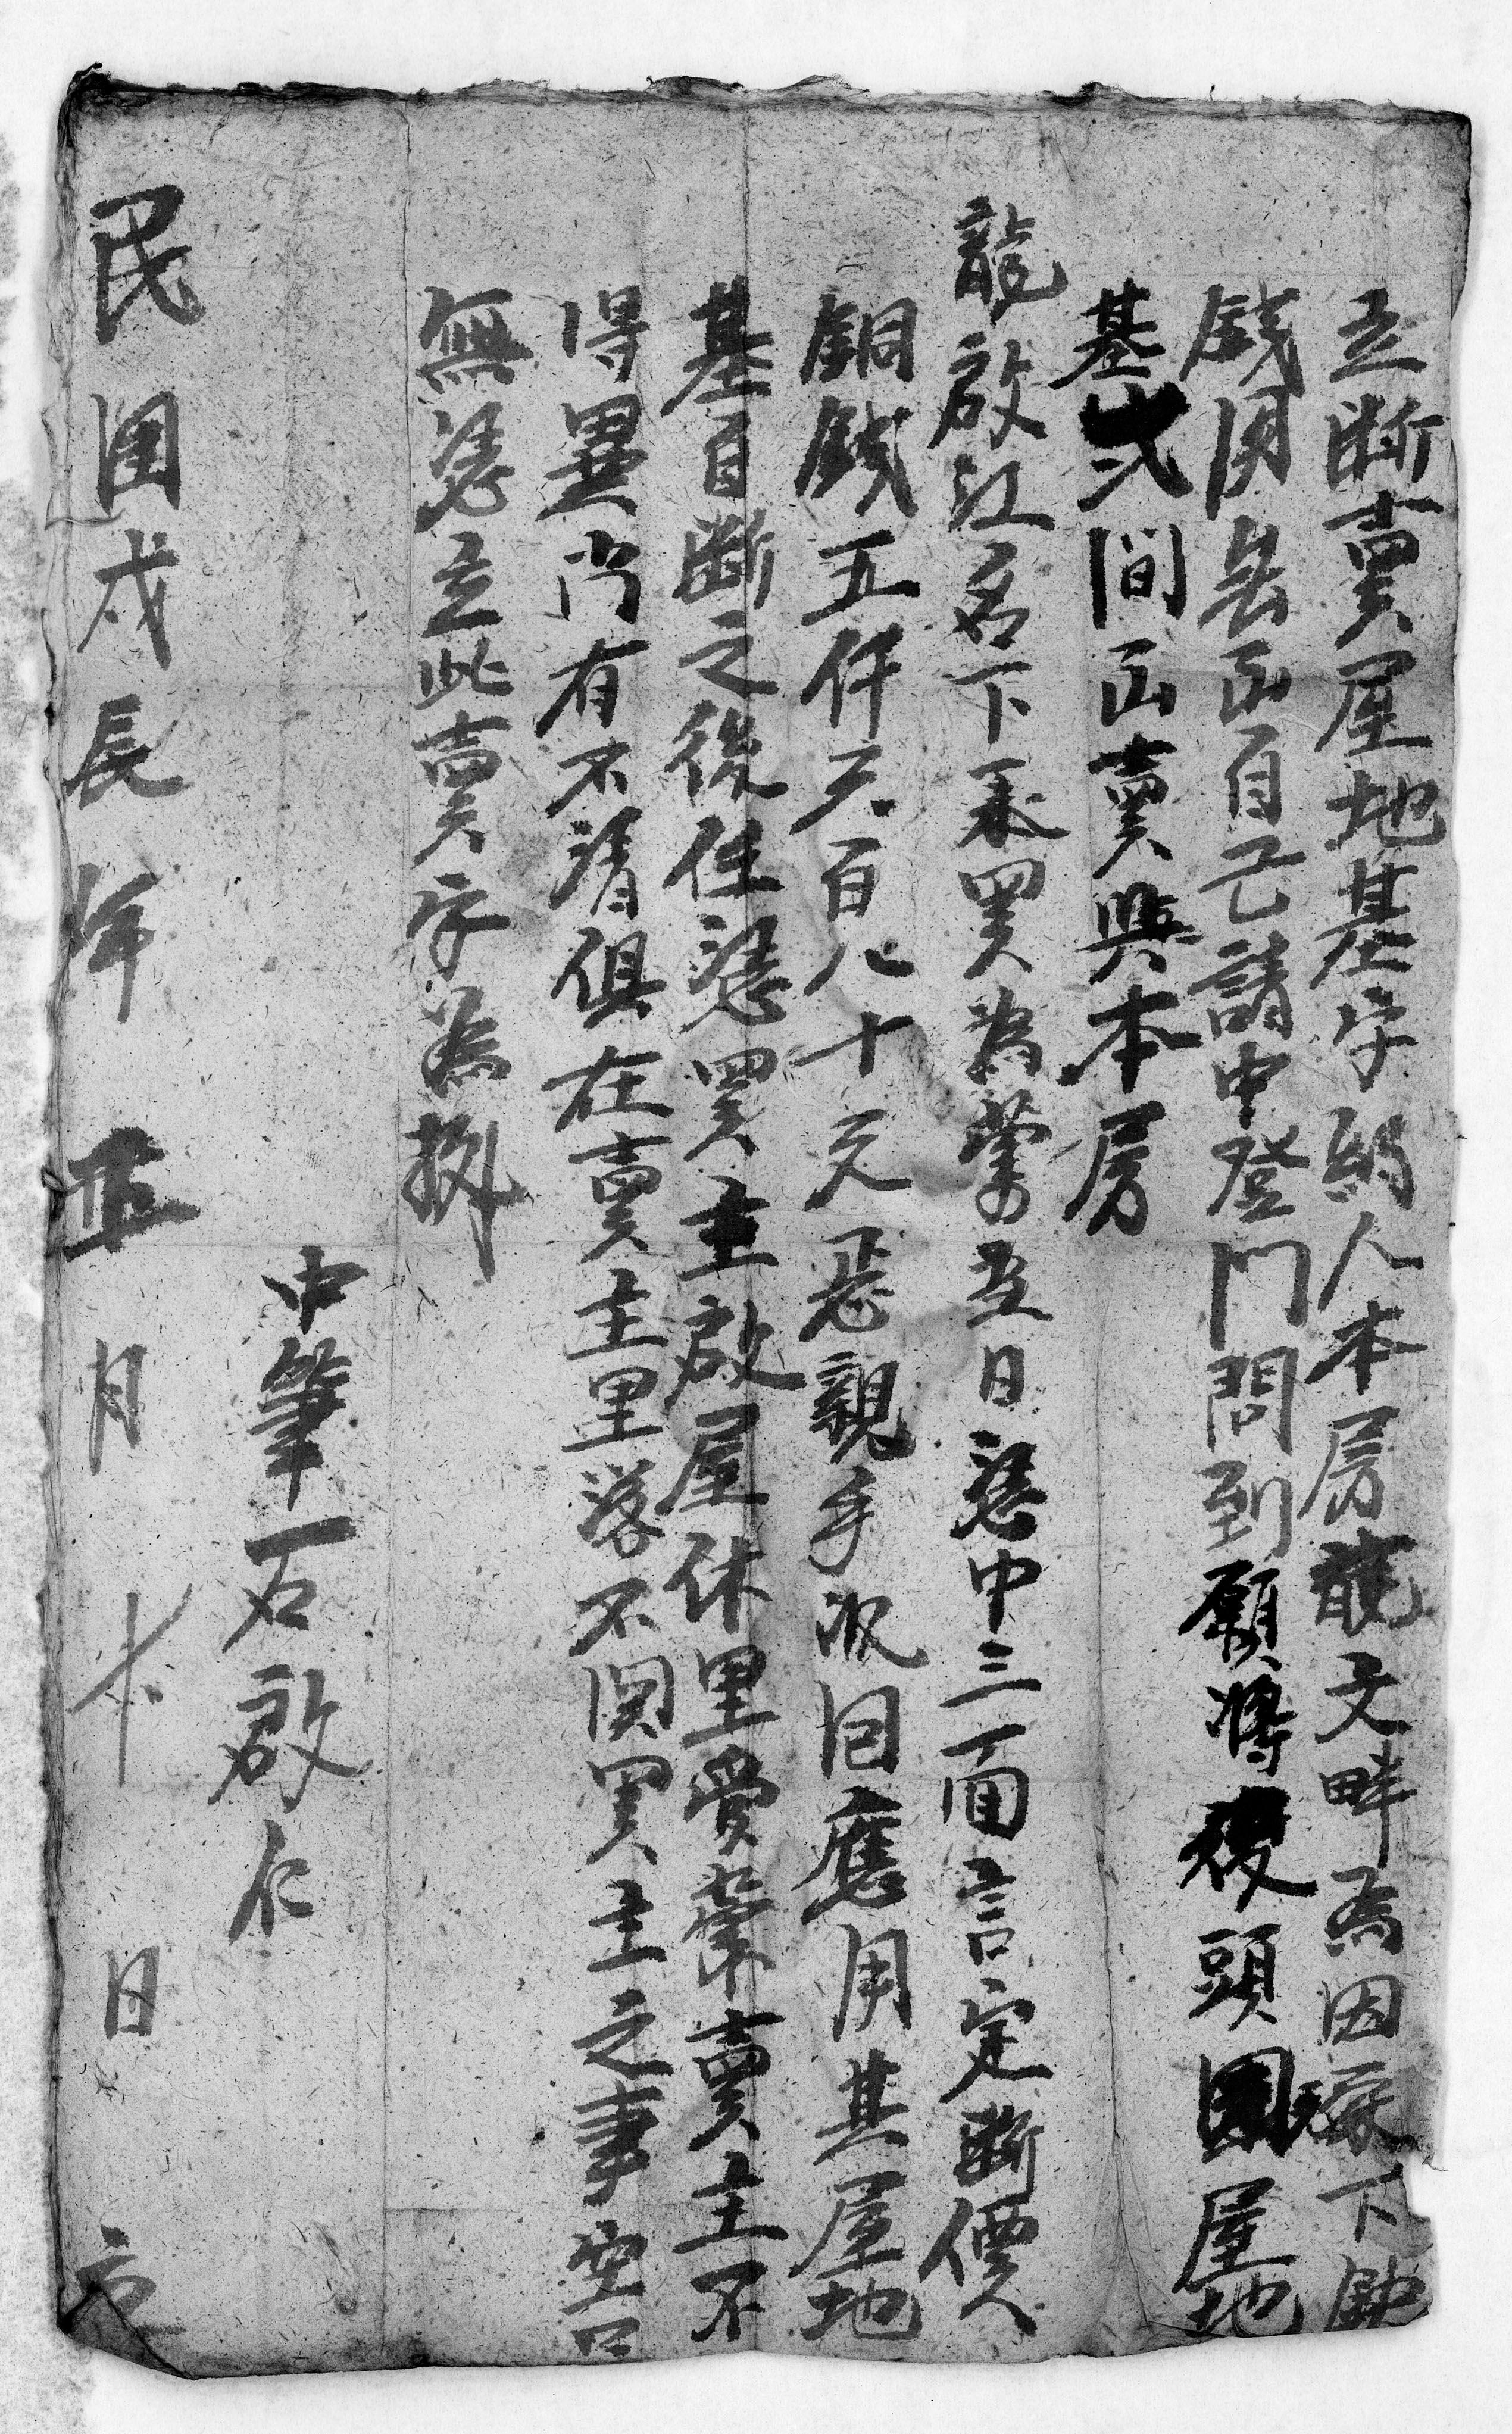 立断賣屋地基字約人本房龍文畔為因家下缺
錢用無出自己請中登門問到願将後頭園屋地
基弍間出賣與本房
龍啟江名下承買為業當日憑中三面言定断價
銅錢五仟六百八十文恁親手收囬應用其屋地
基自断之後任憑買主啟屋休里受業賣主不
得異尚有不清俱在賣主里落不関買主之事空口
無憑立此賣字為拠
中筆石啟仁
民国戊辰年 月 日立